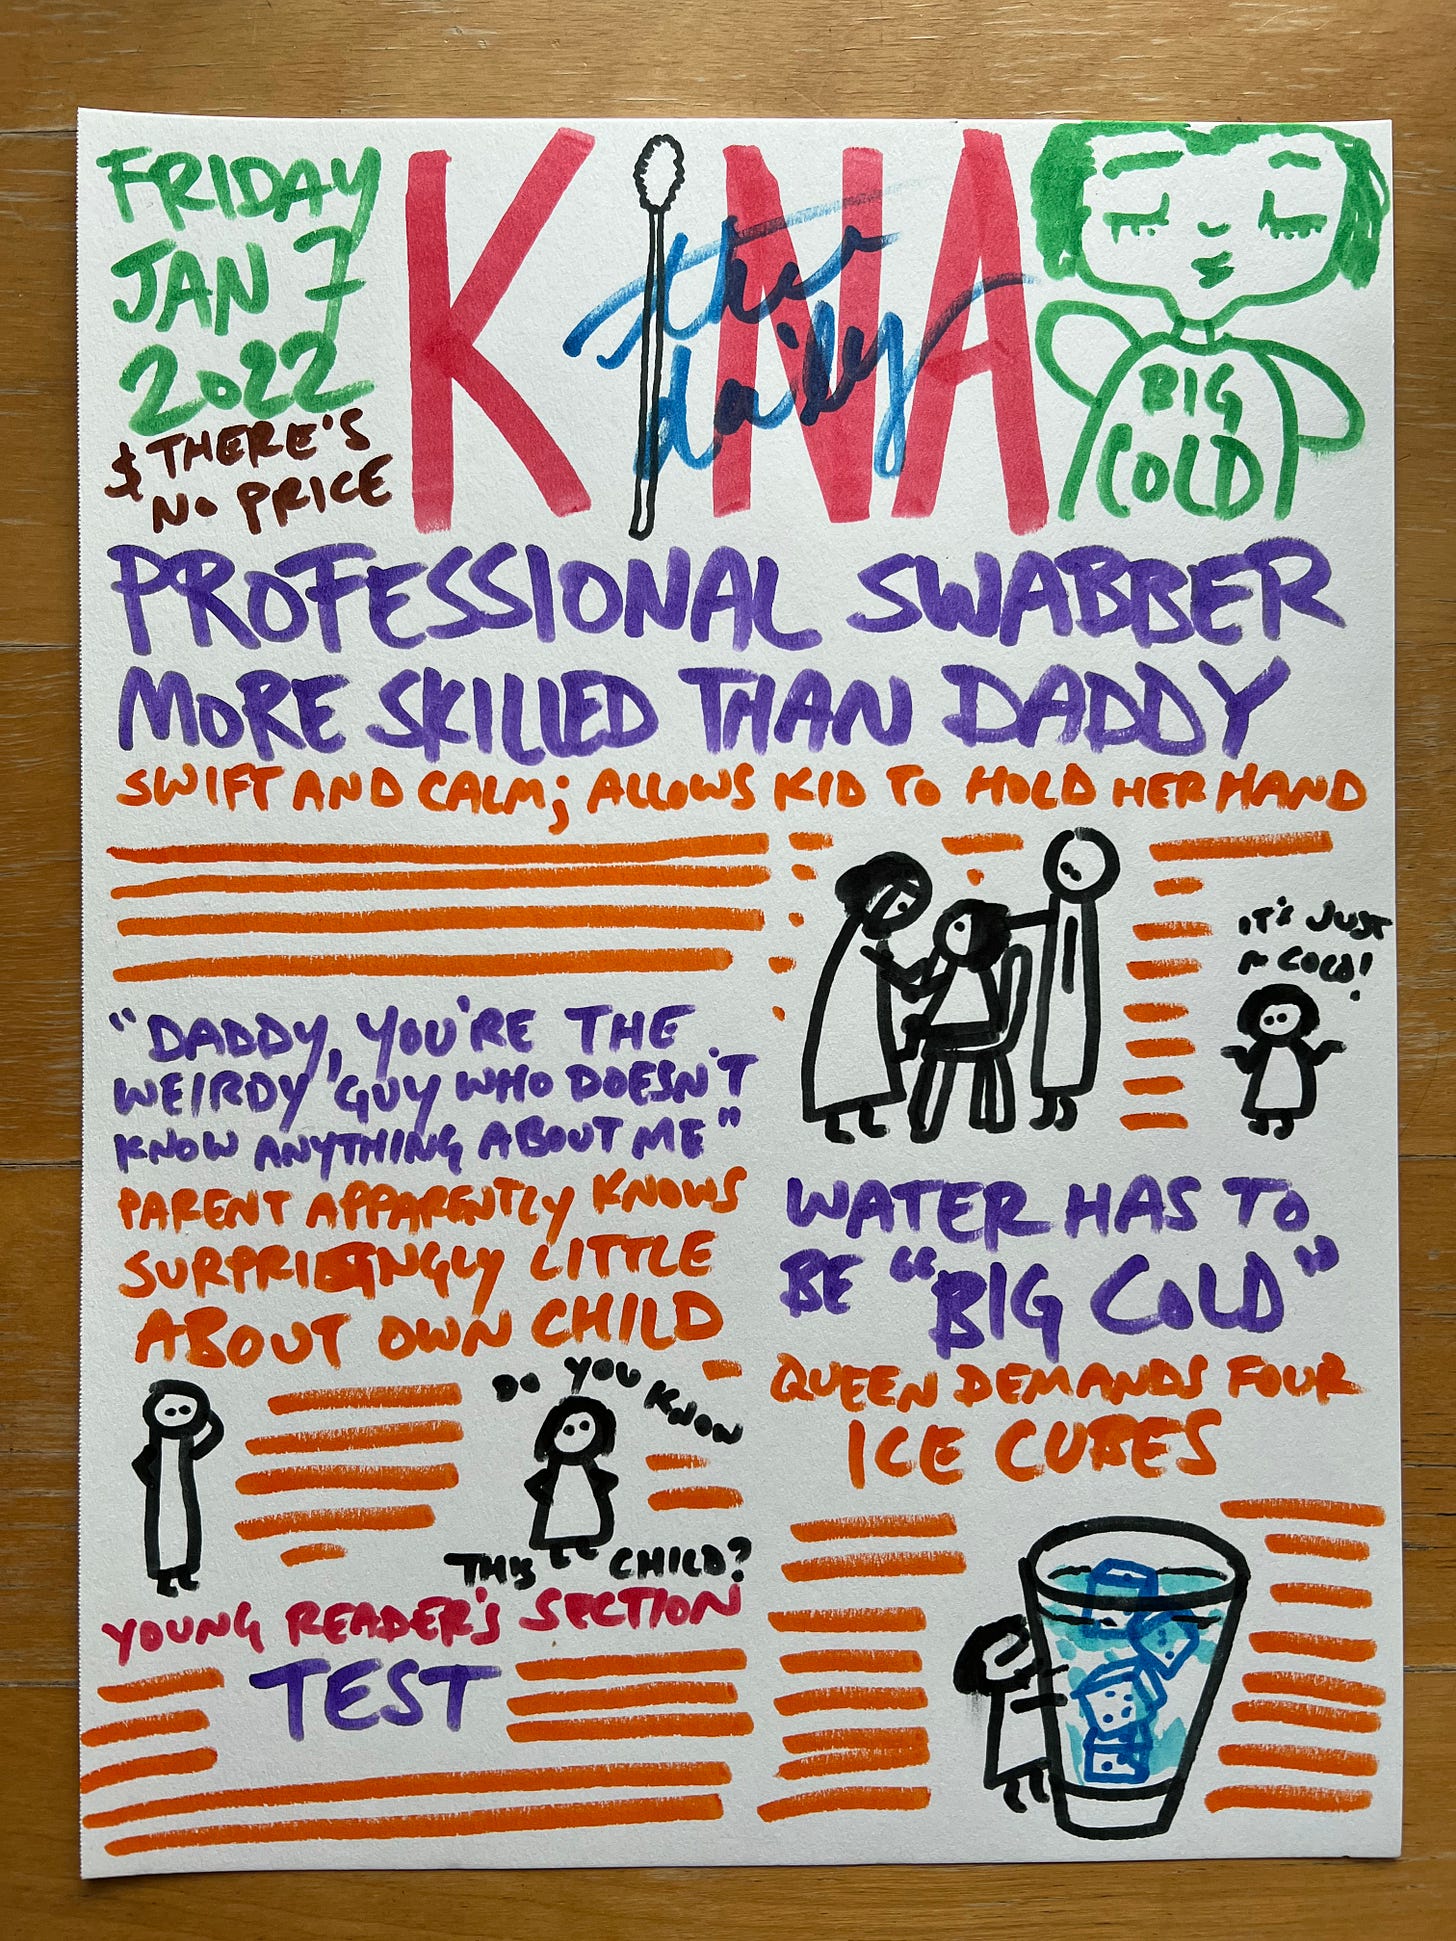 FRIDAY
JAN 7
2022
$ THERE'S
NO PRICE
KINA
the
daily
BIG
COLD
PROFESSIONAL SWABBER
MORE SKILLED THAN DADDY
SWIFT AND CALM; ALLOWS KID TO HOLD HER HAND
IT'S JUST
A COLD!
"DADDY, YOU'RE THE
WEIRDY GUY WHO DOESN'T
KNOW ANYTHING ABOUT ME"
PARENT APPARENTLY KNOWS
SURPRISINGLY LITTLE
ABOUT OWN CHILD
DO YOU KNOW
THIS CHILD?
WATER HAS TO
BE "BIG COLD"
QUEEN DEMANDS FOUR
ICE CUBES
YOUNG READER'S SECTION
TEST